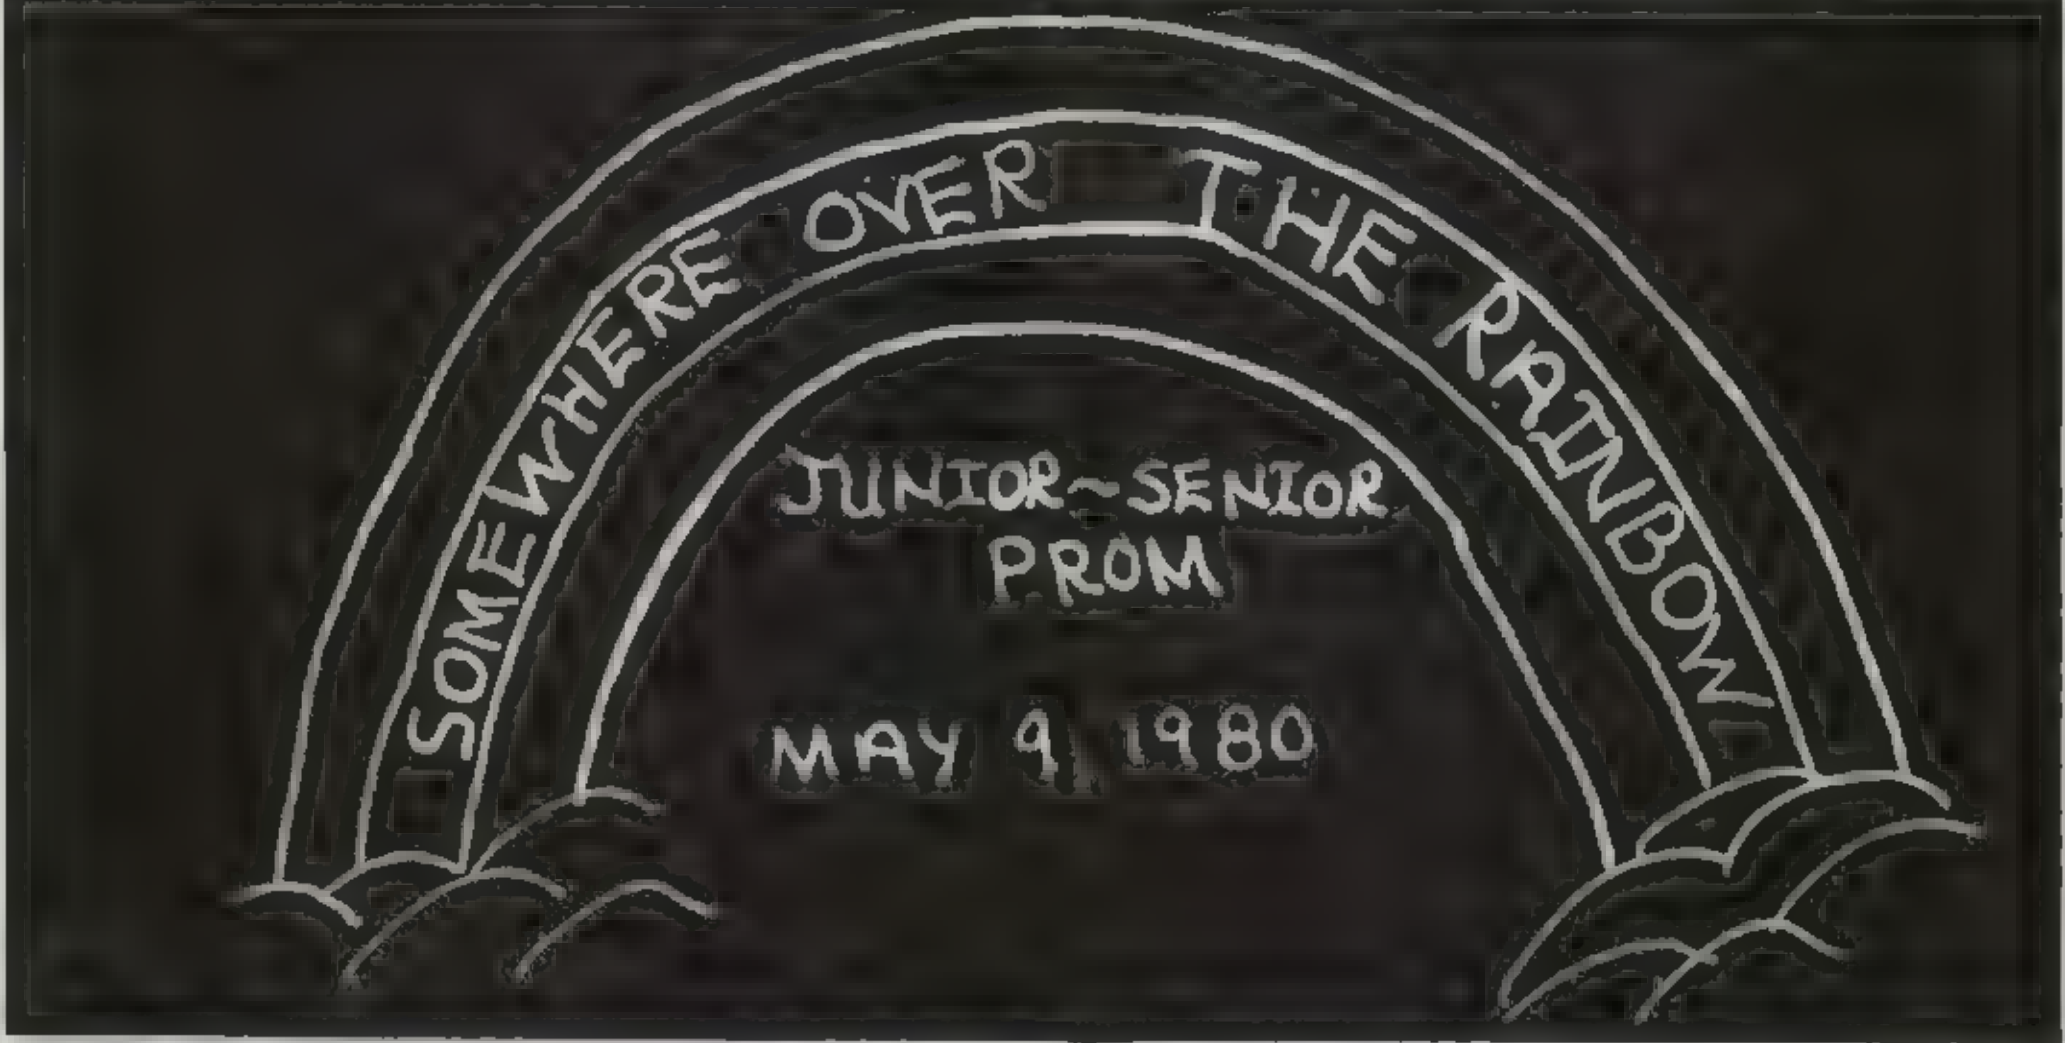 SOMEWHERE OVER THE RAINBOW
JUNIOR~SENIOR
PROM
MAY 9 1980